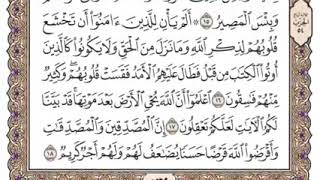 وَبِئْسَ الْمَصِيرُ ١٥ أَلَمْ يَأْنِ لِلَّذِينَ ءَامَنُوٓا۟ أَن تَخْشَعَ
قُلُوبُهُمْ لِذِكْرِ اللَّهِ وَمَا نَزَلَ مِنَ الْحَقِّ وَلَا يَكُونُوا۟ كَالَّذِينَ
أُوتُوا۟ الْكِتَٰبَ مِن قَبْلُ فَطَالَ عَلَيْهِمُ الْأَمَدُ فَقَسَتْ قُلُوبُهُمْ وَكَثِيرٌ
مِّنْهُمْ فَٰسِقُونَ ١٦ ٱعْلَمُوٓا۟ أَنَّ اللَّهَ يُحْىِ الْأَرْضَ بَعْدَ مَوْتِهَا قَدْ بَيَّنَّا
لَكُمُ الْءَايَٰتِ لَعَلَّكُمْ تَعْقِلُونَ ١٧ إِنَّ الْمُصَّدِّقِينَ وَالْمُصَّدِّقَٰتِ
وَأَقْرَضُوا۟ اللَّهَ قَرْضًا حَسَنًا يُضَٰعَفُ لَهُمْ وَلَهُمْ أَجْرٌ كَرِيمٌ ١٨